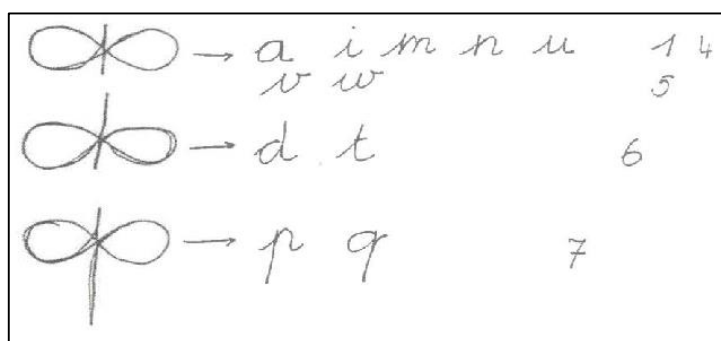 → a i m n u 1 4
v w 5
→ d t 6
→ p q 7